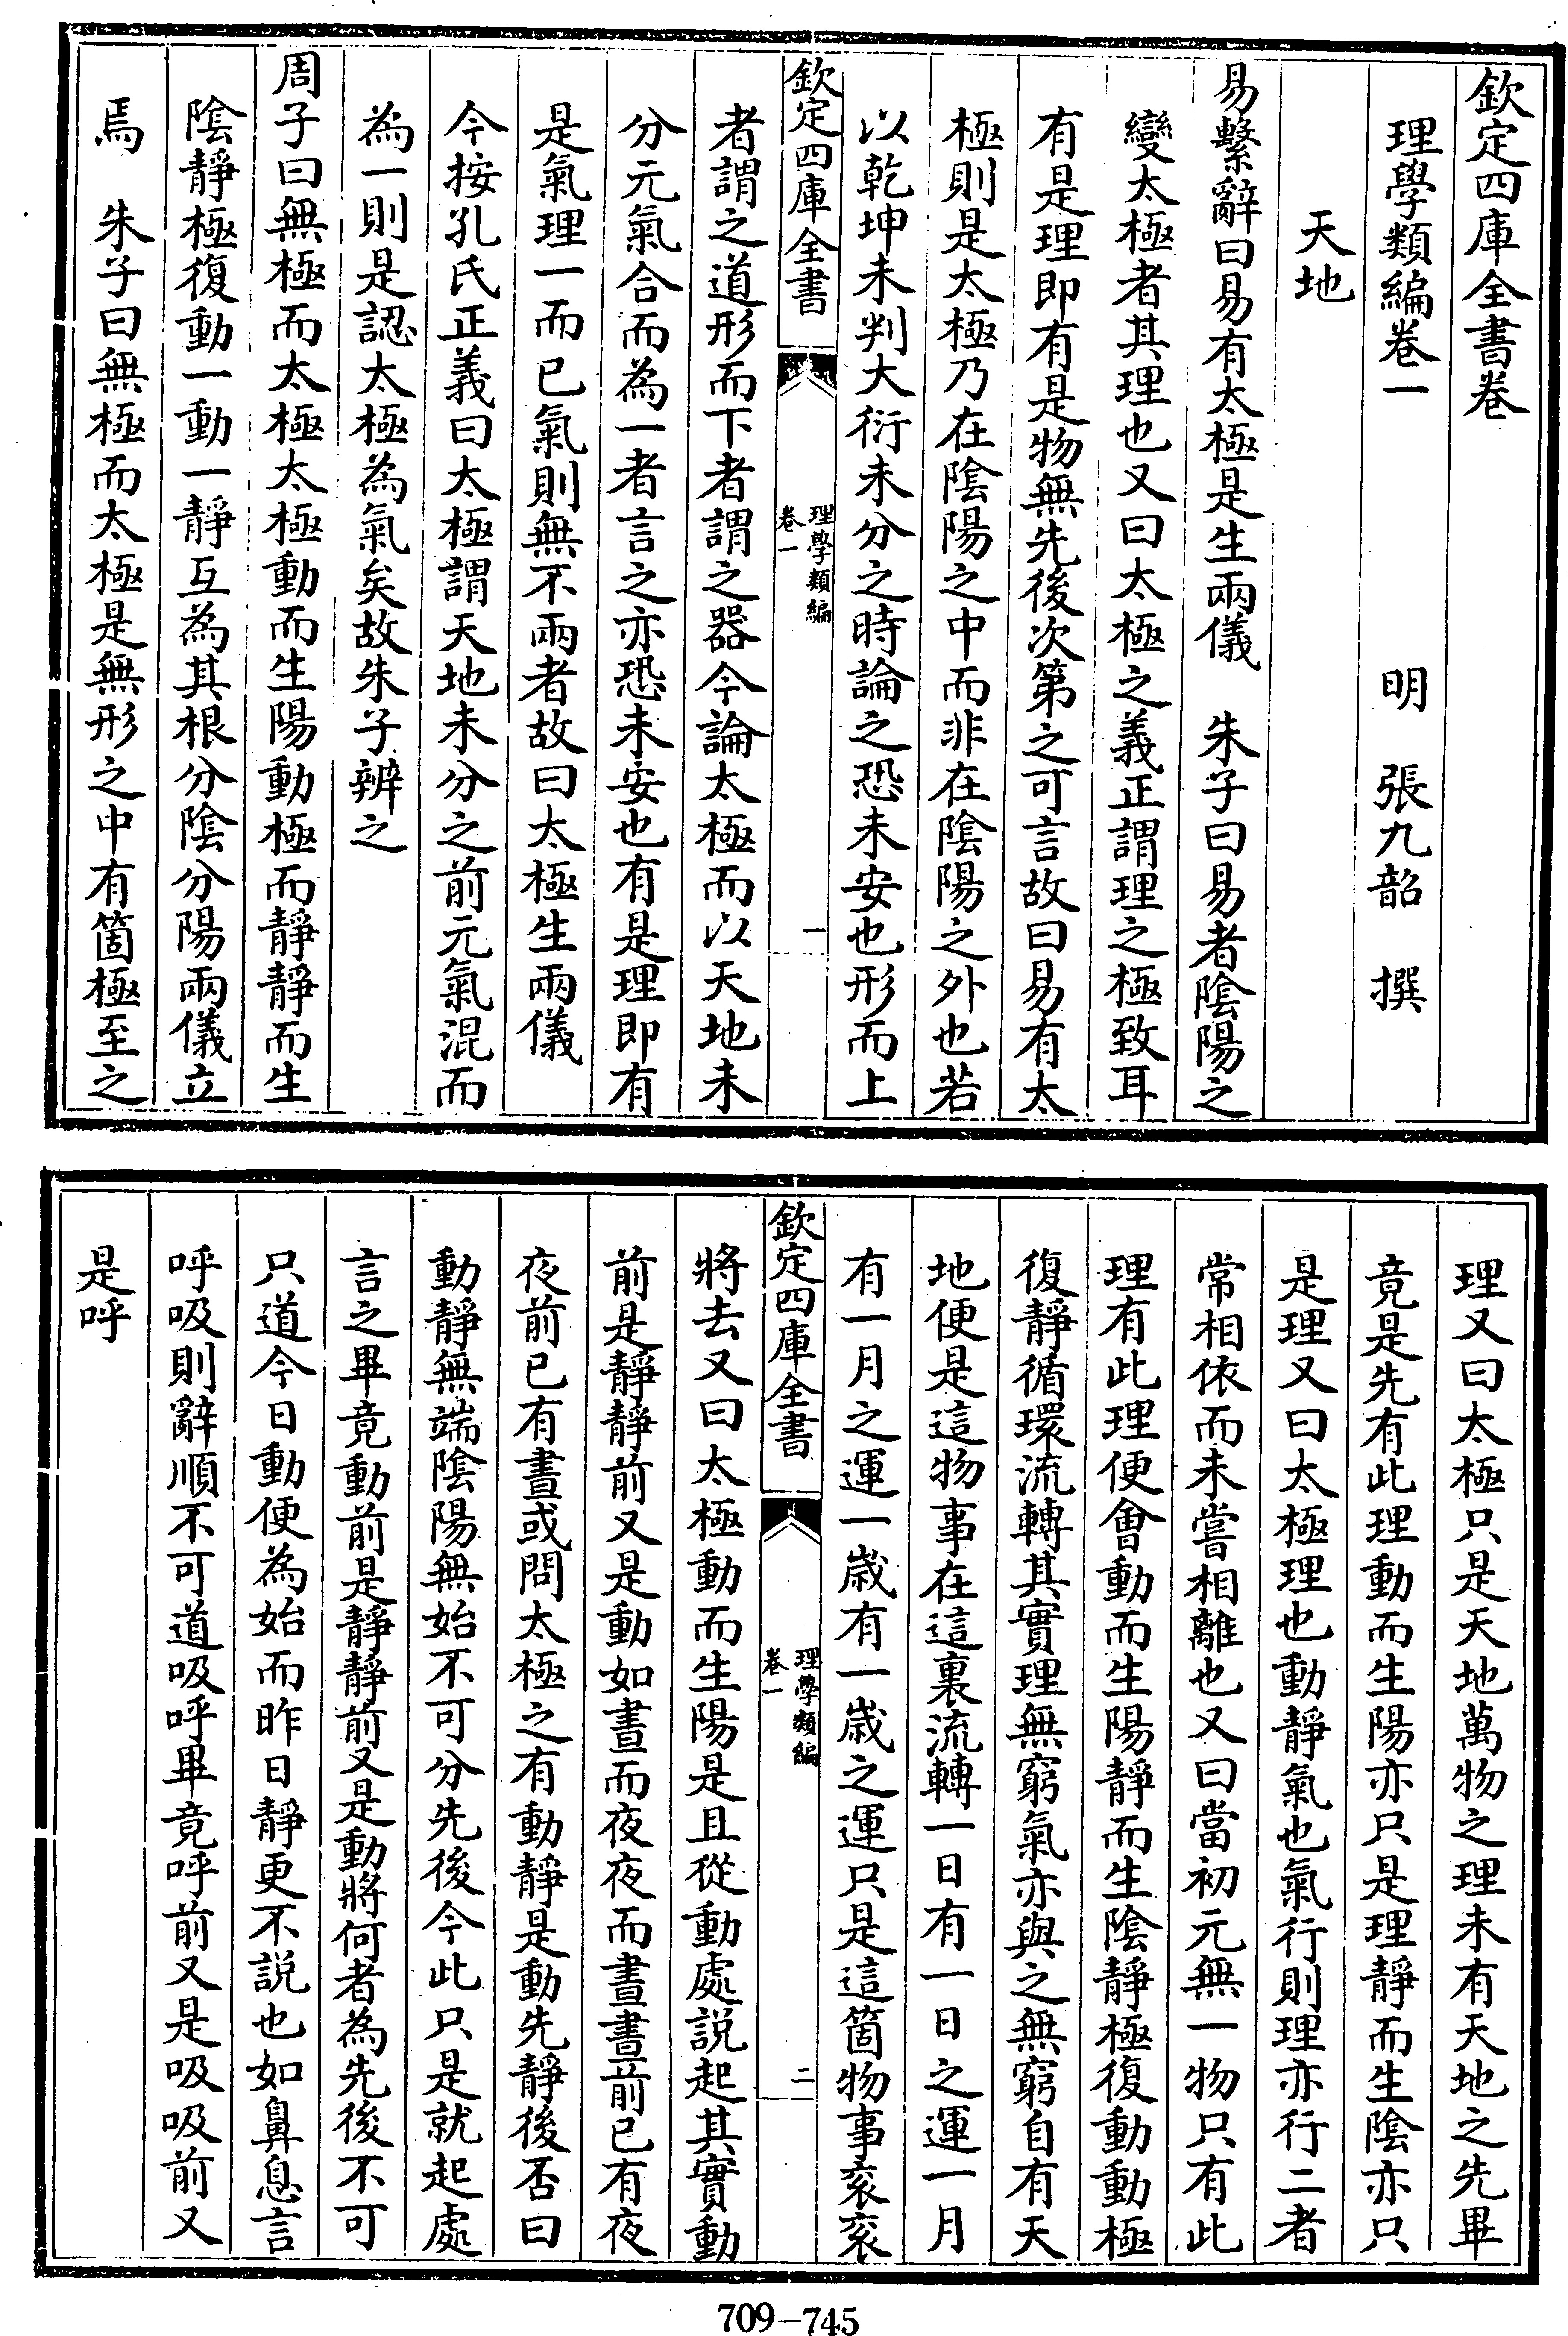 欽定四庫全書卷
理學類編卷一
明 張九韶 撰
天地
易繫辭曰易有太極是生兩儀 朱子曰易者陰陽之
變太極者其理也又曰太極之義正謂理之極致耳
有是理即有是物無先後次第之可言故曰易有太
極則是太極乃在陰陽之中而非在陰陽之外也若
以乾坤未判大衍未分之時論之恐未安也形而上
欽定四庫全書
理學類編
卷一
一
者謂之道形而下者謂之器今論太極而以天地未
分元氣合而為一者言之亦恐未安也有是理即有
是氣理一而已氣則無不兩者故曰太極生兩儀
今按孔氏正義曰太極謂天地未分之前元氣混而
為一則是認太極為氣矣故朱子辨之
周子曰無極而太極太極動而生陽動極而靜靜而生
陰靜極復動一動一靜互為其根分陰分陽兩儀立
焉 朱子曰無極而太極是無形之中有箇極至之
理又曰太極只是天地萬物之理未有天地之先畢
竟是先有此理動而生陽亦只是理靜而生陰亦只
是理又曰太極理也動靜氣也氣行則理亦行二者
常相依而未嘗相離也又曰當初元無一物只有此
理有此理便會動而生陽靜而生陰靜極復動動極
復靜循環流轉其實理無窮氣亦與之無窮自有天
地便是這物事在這裏流轉一日有一日之運一月
有一月之運一歲有一歲之運只是這箇物事衮衮
欽定四庫全書
理學類編
卷一
二
將去又曰太極動而生陽是且從動處說起其實動
前是靜靜前又是動如晝而夜夜而晝晝前已有夜
夜前已有晝或問太極之有動靜是動先靜後否曰
動靜無端陰陽無始不可分先後今此只是就起處
言之畢竟動前是靜靜前又是動將何者為先後不可
只道今日動便為始而昨日靜更不說也如鼻息言
呼吸則辭順不可道吸呼畢竟呼前又是吸吸前又
是呼
709-745